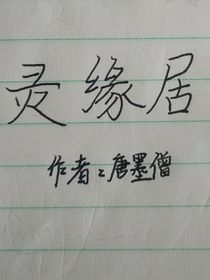 灵缘居
作者：唐墨僧